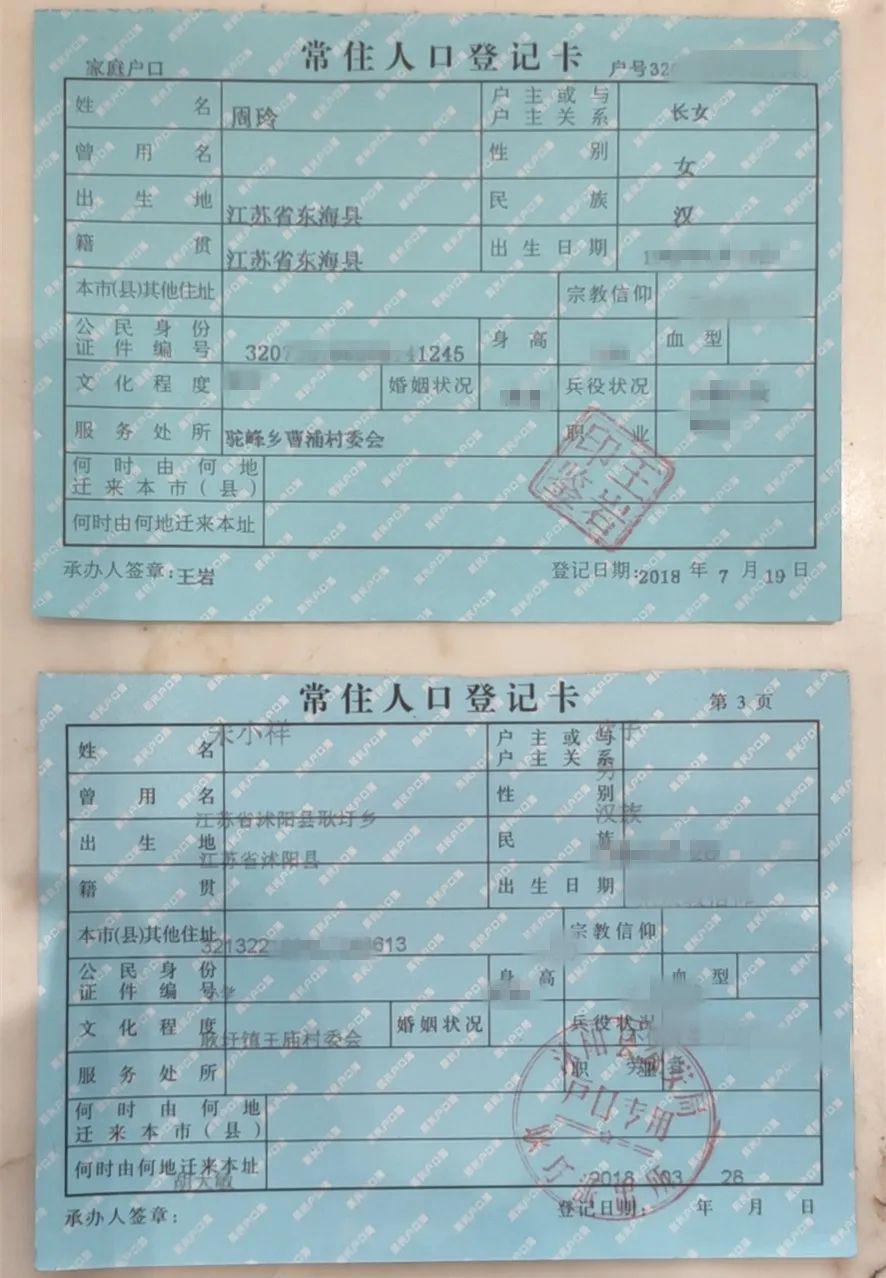 常住人口登记卡
家庭户口 户号320
姓名 周玲 户主或与户主关系 长女
曾用名 性别 女
出生地 江苏省东海县 民族 汉
籍贯 江苏省东海县 出生日期
本市(县)其他住址 宗教信仰
公民身份证件编号 3207 41245 身高 血型
文化程度 婚姻状况 兵役状况
服务处所 驼峰乡曹浦村委会 职业
何时由何地迁来本市(县)
何时由何地迁来本址
王岩印鉴
承办人签章:王岩 登记日期:2018年7月19日
常住人口登记卡
第3页
姓名 小祥 户主或与户主关系 子
男
曾用名 性别
江苏省沭阳县耿圩乡 汉族
出生地 民族
江苏省沭阳县
籍贯 出生日期
本市(县)其他住址 宗教信仰
321322 613
公民身份证件编号 身高 血型
文化程度 婚姻状况 兵役状况
耿圩镇王庙村委会
服务处所 职业
户口专用
何时由何地迁来本市(县)
何时由何地迁来本址
胡大敏 2018 03 28
承办人签章: 登记日期: 年 月 日